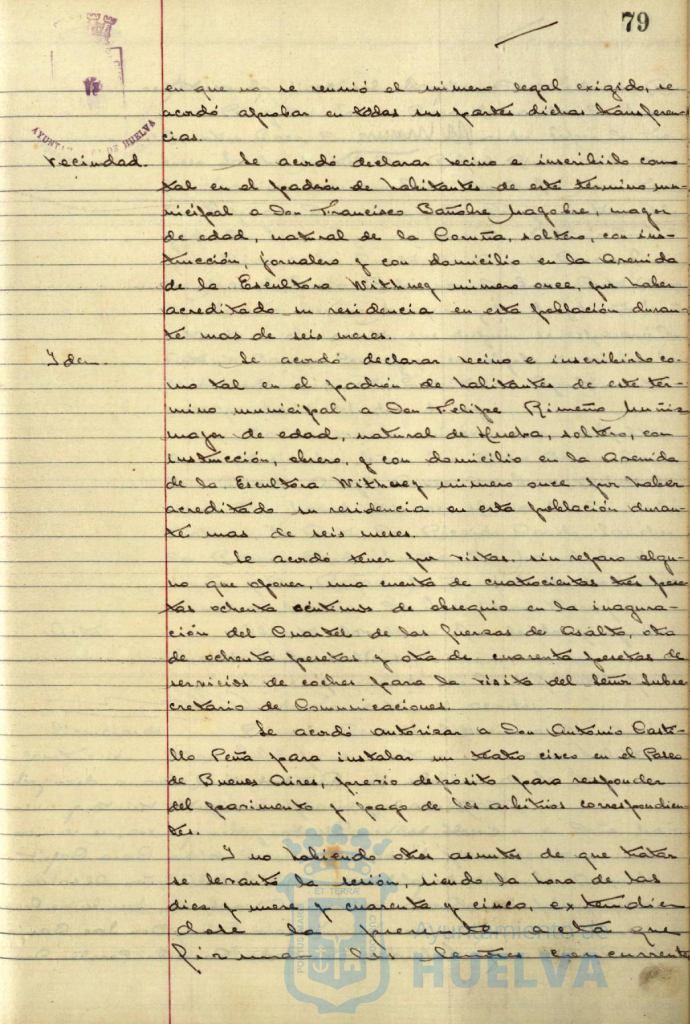 79
AYUNTAMIENTO DE HUELVA
en que no se reunió el número legal exigido, se
acordó aprobar en todas sus partes dichas transferen-
cias.
Vecindad.
Se acordó declarar vecino e inscribirlo como
tal en el padrón de habitantes de este término mu-
nicipal a Don Francisco Bañobre, mayor
de edad, natural de la Coruña, soltero, con ins-
trucción, jornalero y con domicilio en la Avenida
de la Escultora Withney número once, por haber
acreditado su residencia en esta población duran-
te mas de seis meses.
Idem.
Se acordó declarar vecino e inscribirlo co-
mo tal en el padrón de habitantes de este tér-
mino municipal a Don Felipe Rimeño Muñiz
mayor de edad, natural de Huelva, soltero, con
instrucción, obrero, y con domicilio en la Avenida
de la Escultora Withney número once por haber
acreditado su residencia en esta población duran-
te mas de seis meses.
Se acordó tener por vistas, sin reparo algu-
no que oponer, una cuenta de cuatrocientas tres pese-
tas ochenta céntimos de obsequio en la inagura-
ción del Cuartel de las fuerzas de Asalto, otra
de ochenta pesetas y otra de cuarenta pesetas de
servicios de coches para la visita del Señor Subse
cretario de Comunicaciones.
Se acordó autorizar a Don António Casti-
llo Peña para instalar un teatro circo en el Paseo
de Buenos Aires, previo depósito para responder
del pavimento y pago de los arbitrios correspondien-
tes.
Y no habiendo otros asuntos de que tratar
se levantó la sesión, siendo la hora de las
diez y nueve y cuarenta y cinco, extendien
dose la presente acta que
firman los Señores concurrentes
Ayuntamiento de
HUELVA